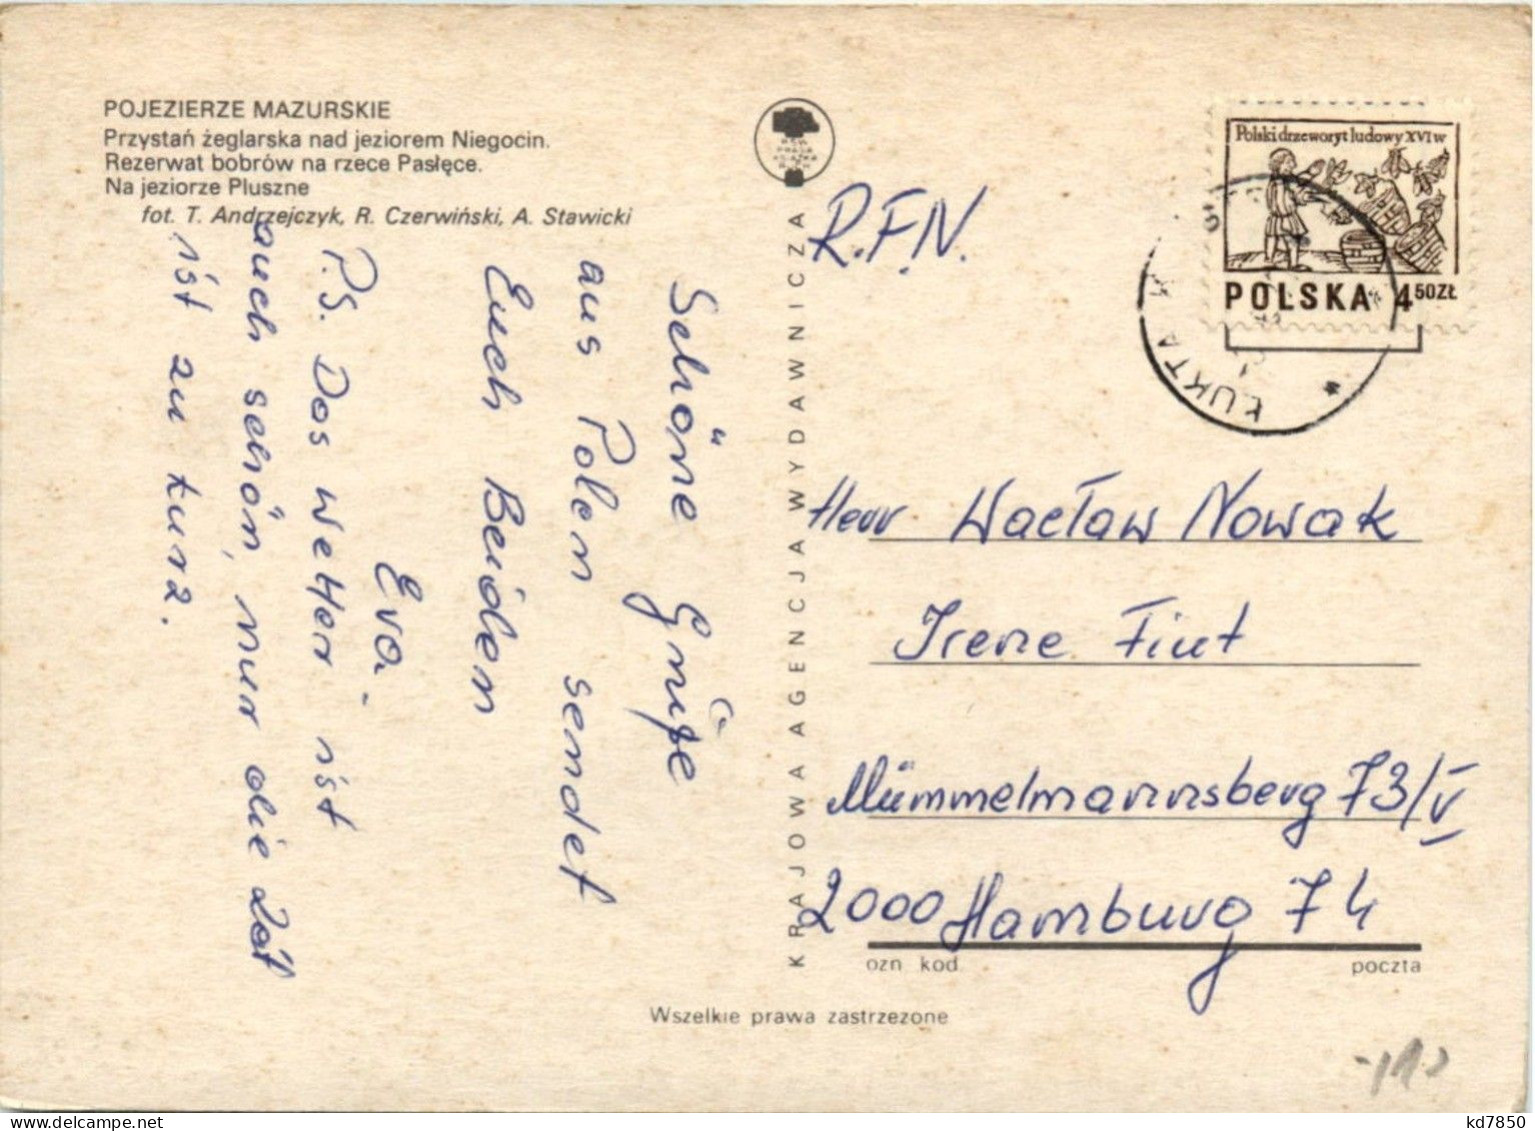 POJEZIERZE MAZURSKIE
Przystań żeglarska nad jeziorem Niegocin.
Rezerwat bobrów na rzece Pasłęce.
Na jeziorze Pluszne
fot. T. Andrzejczyk, R. Czerwiński, A. Stawicki
Schöne Grüße
aus Polen sendet
Euch Beiden
Eva.
P.S. Das Wetter ist
auch schön, nur die Zeit
ist zu kurz.
KRAJOWA AGENCJA WYDAWNICZA
R.F.N.
Polski drzeworyt ludowy XVI w
POLSKA 4 50ZŁ
ŁUKTA
Herr Wacław Nowak
Irene Fiut
Mümmelmannsberg 73/V
2000 Hamburg 74
ozn kod poczta
Wszelkie prawa zastrzeżone
kd7850